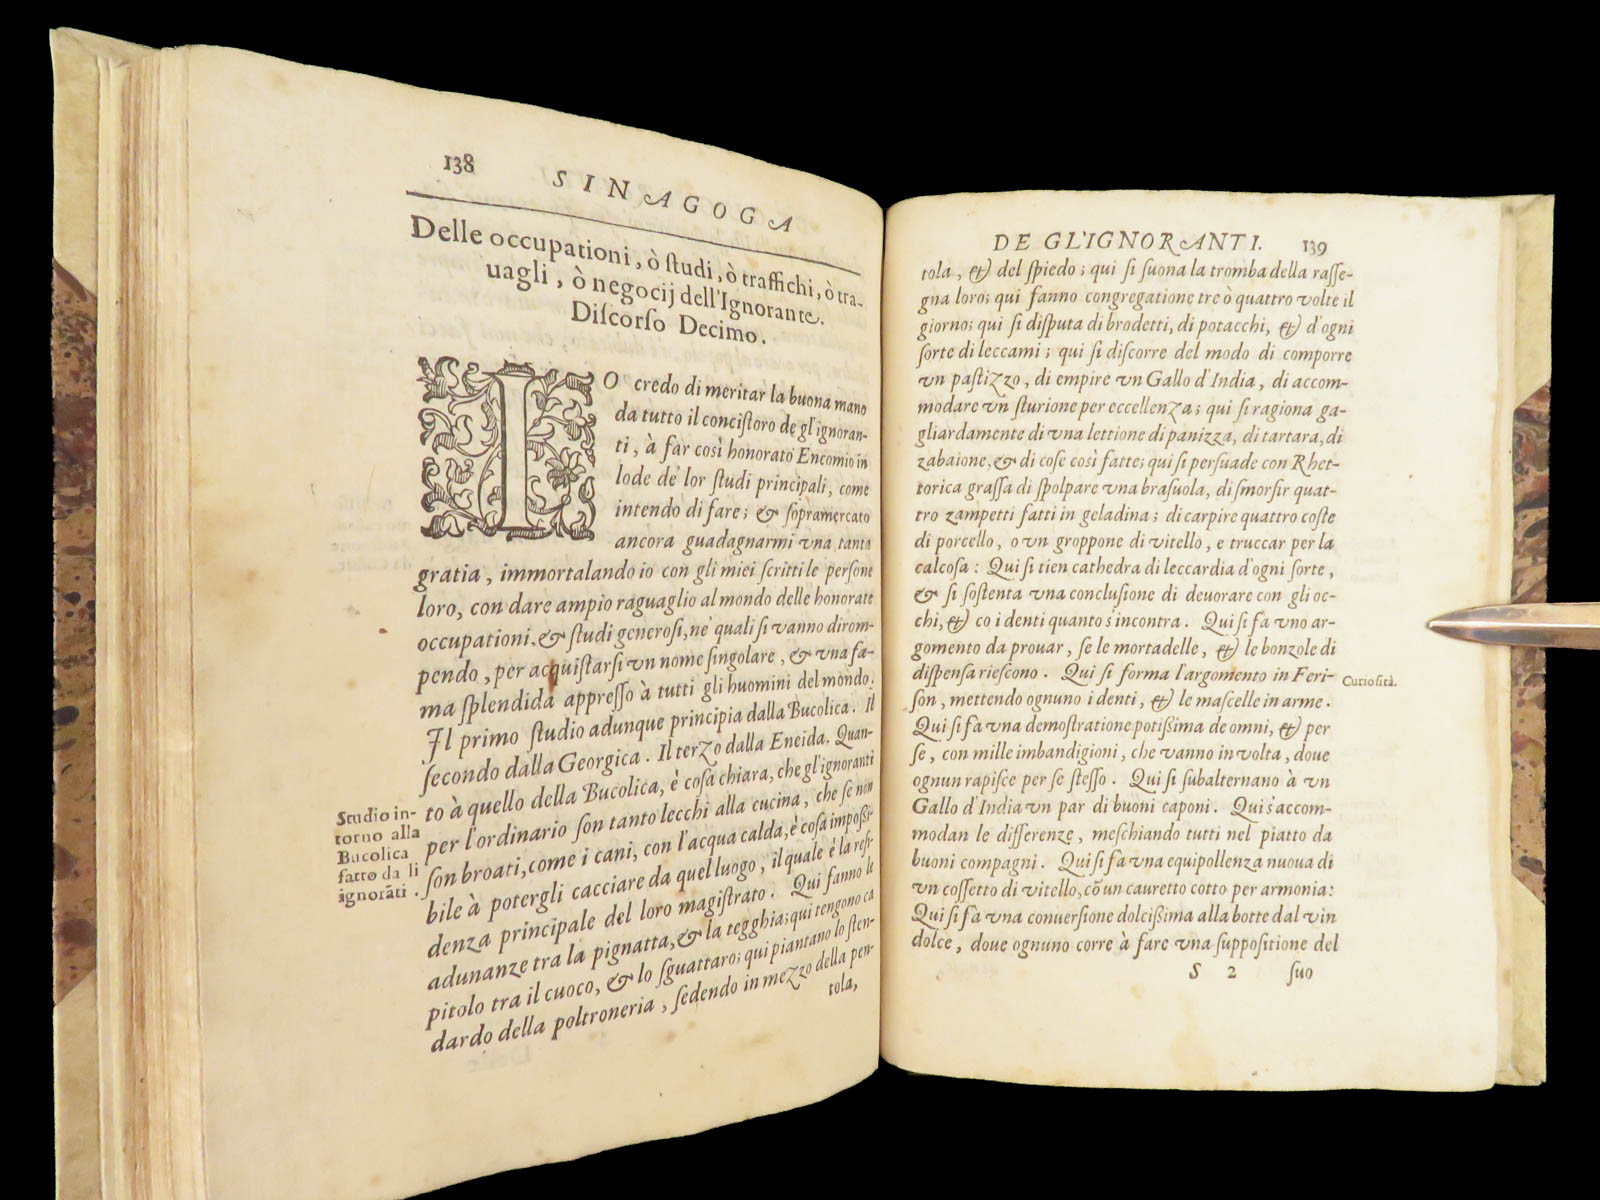 138 SINAGOGA
Delle occupationi, ò ſtudi, ò traffichi, ò tra-
uagli, ò negocij dell'Ignorante.
Diſcorſo Decimo.
IO credo di meritar la buona mano
da tutto il conciſtoro de gl'ignoran-
ti, à far così honorato Encomio in
lode de' lor ſtudi principali, come
intendo di fare; & ſopramercato
ancora guadagnarmi vna tanta
gratia, immortalando io con gli miei ſcritti le perſone
loro, con dare ampio raguaglio al mondo delle honorate
occupationi, & ſtudi generoſi, ne' quali ſi vanno dirom-
pendo, per acquiſtarſi vn nome ſingolare, & vna fa-
ma ſplendida appreſſo à tutti gli huomini del mondo.
Il primo ſtudio adunque principia dalla Bucolica. Il
ſecondo dalla Georgica. Il terzo dalla Eneida. Quan-
to à quello della Bucolica, è coſa chiara, che gl'ignoranti
per l'ordinario ſon tanto lecchi alla cucina, che ſe non
ſon broati, come i cani, con l'acqua calda, è coſa impoßi-
bile à potergli cacciare da quel luogo, il quale è la reſi-
denza principale del loro magiſtrato. Qui fanno le
adunanze tra la pignatta, & la tegghia; qui tengono ca
pitolo tra il cuoco, & lo ſguattaro; qui piantano lo ſten-
dardo della poltroneria, ſedendo in mezzo della pen-
tola,
Studio in-
torno alla
Bucolica
fatto da li
ignorāti.
DE GL'IGNORANTI. 139
tola, & del ſpiedo; qui ſi ſuona la tromba della raſſe-
gna loro; qui fanno congregatione tre ò quattro volte il
giorno; qui ſi diſputa di brodetti, di potacchi, & d'ogni
ſorte di leccami; qui ſi diſcorre del modo di comporre
vn paſtizzo, di empire vn Gallo d'India, di accom-
modare vn ſturione per eccellenza; qui ſi ragiona ga-
gliardamente di vna lettione di panizza, di tartara, di
zabaione, & di coſe così fatte; qui ſi perſuade con Rhet-
torica graſſa di ſpolpare vna braſuola, di ſmorſir quat-
tro zampetti fatti in geladina; di carpire quattro coſte
di porcello, o vn groppone di vitello, e truccar per la
calcoſa: Qui ſi tien cathedra di leccardia d'ogni ſorte,
& ſi ſoſtenta vna concluſione di deuorare con gli oc-
chi, & co i denti quanto s'incontra. Qui ſi fa vno ar-
gomento da prouar, ſe le mortadelle, & le bonzole di
diſpenſa rieſcono. Qui ſi forma l'argomento in Feri-
ſon, mettendo ognuno i denti, & le maſcelle in arme.
Qui ſi fà vna demoſtratione potißima de omni, & per
ſe, con mille imbandigioni, che vanno in volta, doue
ognun rapiſce per ſe ſteſſo. Qui ſi ſubalternano à vn
Gallo d'India vn par di buoni caponi. Qui s'accom-
modan le differenze, meſchiando tutti nel piatto da
buoni compagni. Qui ſi fa vna equipollenza nuoua di
vn coſſetto di vitello, cō un cauretto cotto per armonia:
Qui ſi fà vna conuerſione dolcißima alla botte dal vin
dolce, doue ognuno corre à fare vna ſuppoſitione del
S 2 ſuo
Curioſità.